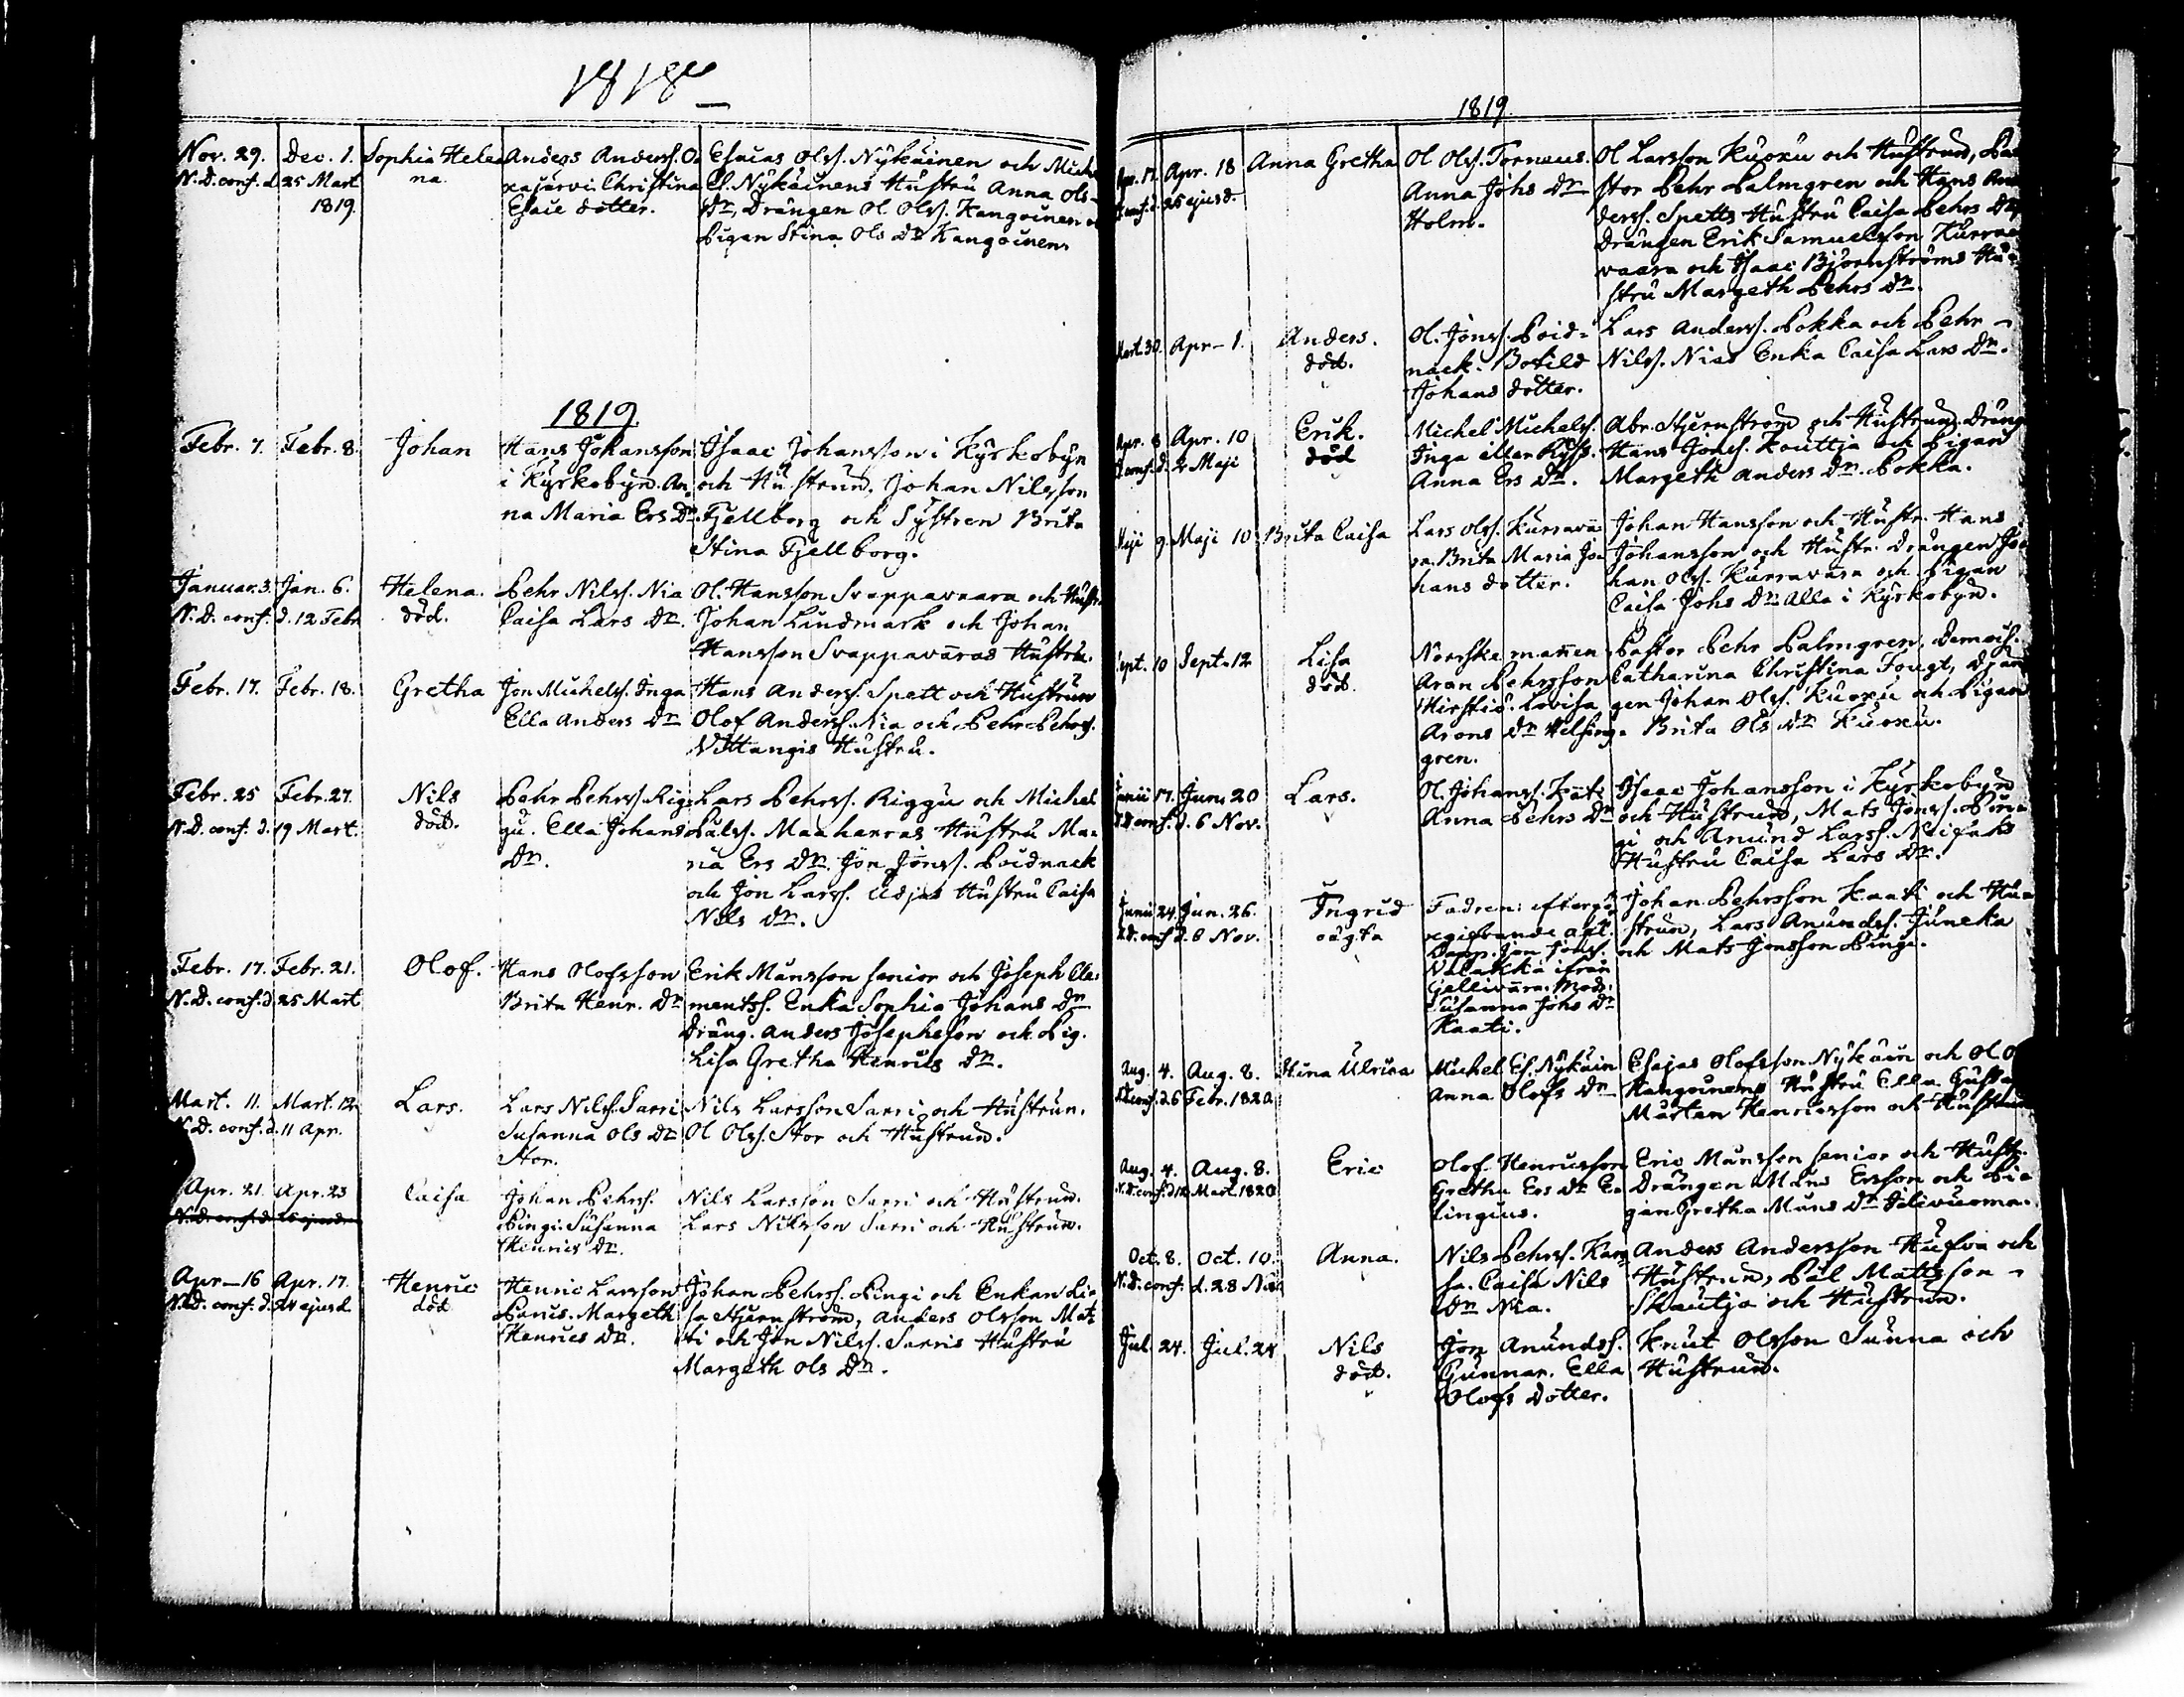 1818
Nov. 29. Dec. 1. Sophia Hele Anders Anderss. Esaias Olss. Nykäinen och
N.D. conf. d. 25 Mart. na. xajärvi. Christina Es. Nykäinens Hustru Anna Ols
1819. Esaie dotter. Dr, Drängen Ol. Olss. Kangoinen
Pigan Stina Ols Dr Kangoinen
1819.
Febr. 7. Febr. 8. Johan Hans Johansson Isaac Johansson i Kyrkobyn
i Kyrkobyn. An, och Hustrun. Johan Nilsson
na Maria Ers Dr. Fjellborg och Systren Brita
Stina Fjellborg.
Januar. 3. Jan. 6. Helena. Pehr Nilss. Nia Ol. Hansson Svappavaara och Hustr.
N.D. conf. d. 12 Febr. död. Caisa Lars Dr. Johan Lindmark och Johan
Hansson Svappavaras Hustru.
Febr. 17. Febr. 18. Gretha Jon Michelss. Inga Hans Anderss. Spett och Hustrun
Ella Anders Dr Olof Anderss. Nia och Pehr Pehrss.
Vittangis Hustru.
Febr. 25 Febr. 27. Nils Pehr Pehrss. Rig Lars Pehrss. Riggu och Michel
N.D. conf. d. 19 Mart. död. gu. Ella Johans Pålss. Maaharras Hustru Ma-
Dr. ria Ers Dr. Jon Jonss. Poidnack
och Jon Larss. Udjas Hustru Caisa
Nils Dr.
Febr. 17. Febr. 21. Olof. Hans Olofsson Erik Månsson senior och Joseph Cle-
N.D. conf. d. 25 Mart. Brita Henr. Dr mentss. Enka Sophia Johans Dr
Dräng. Anders Josephsson och Pig.
Lisa Gretha Henrics Dr.
Mart. 11. Mart. 12. Lars. Lars Nilss. Sarri Nils Larsson Sarri och Hustrun.
N.D. conf. d. 11 Apr. Susanna Ols Dr Ol Olss. Stor och Hustrun.
Stor.
Apr. 21. Apr. 23 Caisa Johan Pehrss. Nils Larsson Sarri och Hustrun.
N.D. conf. d. 25 ejusd. Pingi. Susanna Lars Nilsson Sarri och Hustrun.
Henrics Dr.
Apr. 16 Apr. 17. Henric Henric Larsson Johan Pehrss. Pingi och Enkan Li-
N.D. conf. d. 24 ejusd. död Margeth sa Stjernström, Anders Olsson Mat-
Henrics Dr. ti och Jon Nilss. Sarris Hustru
Margeth Ols Dr.
1819.
Apr. 17. Apr. 18 Anna Gretha Ol Olss. Tornæus. Ol Larsson Kuoxu och Hustrun, Pa
conf. d. 25 ejusd. Anna Johs Dr stor Pehr Palmgren och Hans An
Holm. derss. Spetts Hustru Caisa Pehrs Dr,
Drängen Erik Samuelsson Kurra
vaara och Isaac Björnströms Hu-
stru Margeth Pehrs Dr.
Mart. 30. Apr. 1. Anders. Ol. Jonss. Poid- Lars Anderss. Pokka och Pehr
död. nack. Botild Nilss. Nias Enka Caisa Lars Dr.
Johans dotter.
Apr. 8 Apr. 10 Erik. Michel Michelss. Abr. Stjernström och Hustrun, Dräng
conf. d. 2 Maji död Inga eller Anna Ers Dr. Hans Jonss. Kouttja och Pigan
Margeth Anders Dr. Pokka.
Maji 9. Maji 10 Brita Caisa Lars Olss. Kurrava Johan Hansson och Hustr. Hans
ra. Brita Maria Jo Johansson och Hustr. Drängen Jo
hans dotter. han Olss. Kurravara och Pigan
Caisa Johs Dr. Alla i Kyrkobyn.
Sept. 10 Sept. 12 Lisa Norrske mannen Pastor Pehr Palmgren, Demois.
död. Aron Pehrsson Catharina Christina Fougt, Drän
Lovisa gen Johan Olss. Kuoxu och Pigan
Arons Dr Helsing- Brita Ols Dr Kuoxu.
gren.
Junii 17. Jun. 20 Lars. Ol. Johanss. Kati Isaac Johansson i Kyrkobyn
N.D. conf. d. 6 Nov. Anna Pehrs Dr och Hustrun, Mats Jonss. Pin-
gi och Anund Larss.
Hustru Caisa Lars Dr.
Junii 24. Jun. 26. Ingrid Fadren: Johan Pehrsson Kaati och Hu-
N.D. conf. d. 8 Nov. oägta strun, Lars Anundss. Juneka
Jon Jonss. och Mats Jonsson Pingi.
Valakka ifrån
Gellivara. Modr:
Susanna Johs Dr
Kaati.
Aug. 4. Aug. 8. Stina Ulrica Michel Es. Nykäin Esajas Olofsson Nykäin och Ol O
N.D. conf. d. 6 Febr. 1820 Anna Olofs Dr Kangoinens Hustru Ella Gusta
Mårtan Henricsson och Hustrun
Aug. 4. Aug. 8. Eric Olof Henricsson Eric Månsson senior och Hustr.
N.D. conf. d. 12 Mart. 1820 Gretha Ers Dr Er- Drängen Måns Ersson och Pi-
lingius. gan Gretha Måns Dr
Oct. 8. Oct. 10. Anna. Nils Pehrss. Anders Andersson Hufva och
N.D. conf. d. 28 Nov. Caisa Nils Hustrun, Pål Mattsson
Dr Nia. Skautja och Hustrun.
Jul. 24. Jul. 24 Nils Jon Anundss. Knut Olsson Sunna och
död. Gunnar. Ella Hustrun.
Olofs dotter.